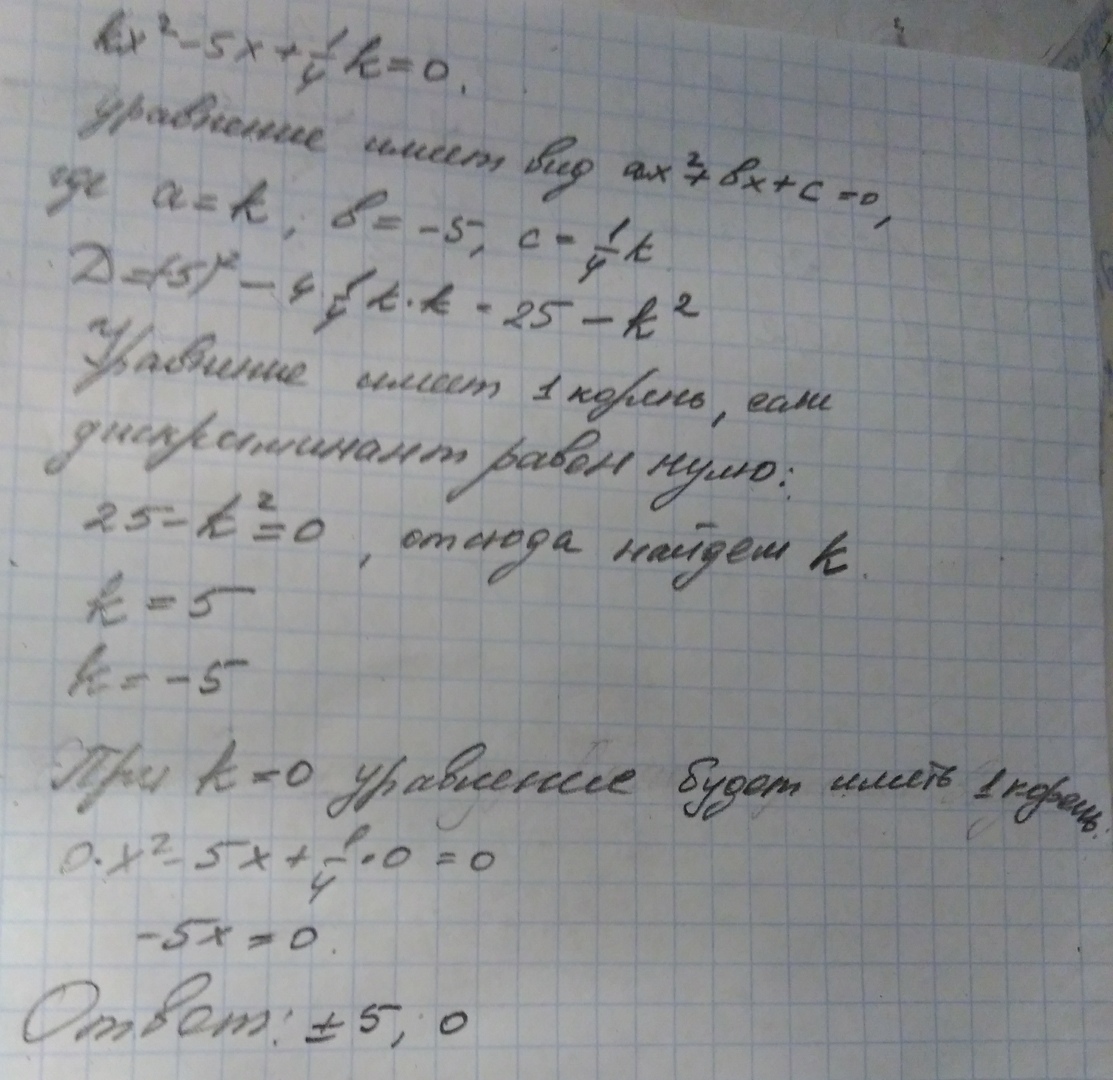 kx² - 5x + 1/4 k = 0.
уравнение имеет вид ax² + bx + c = 0,
где a = k, b = -5, c = 1/4 k
D = (-5)² - 4 1/4 k · k = 25 - k²
Уравнение имеет 1 корень, если
дискриминант равен нулю:
25 - k² = 0, отсюда найдем k.
k = 5
k = -5
При k = 0 уравнение будет иметь 1 корень.
0 · x² - 5x + 1/4 · 0 = 0
-5x = 0.
Ответ: ± 5, 0